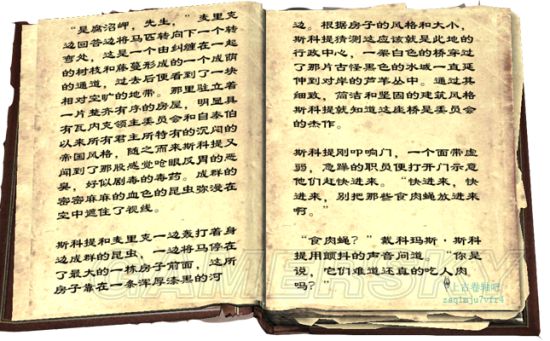 “是腐沼岬，先生，”麦里克
边回答边将马匹转向下一个转
弯处，这是一个由纠缠在一起
的树枝和藤蔓形成的一个成荫
的通道，过去后便看到了一块
相对空旷的地带。那里驻立着
一片整齐有序的房屋，明显具
有瓦内克领主委员会和自泰伯
以来所有君主所特有的沉闷的
帝国风格，随之而来斯科提又
闻到了那股感觉呛眼反胃的恶
臭，好似剧毒的毒药。成群的
密密麻麻的血色的昆虫弥漫在
空中遮住了视线。
斯科提和麦里克一边轰打着身
边成群的昆虫，一边将马停在
了最大的一栋房子前面，这所
房子靠在一条浑厚漆黑的河
边。根据房子的风格和大小，
斯科提猜测这应该就是此地的
行政中心，一架白色的桥穿过
了那片古怪黑色的水域一直延
伸到对岸的芦苇丛中。通过其
细致，简洁和坚固的建筑风格
斯科提就知道这座桥是委员会
的杰作。
斯科提刚叩响门，一个面带虚
弱，急躁的职员便打开门示意
他们赶快进来。“快进来，快
进来，别把那些食肉蝇放进来
啊。”
“食肉蝇？”戴科玛斯·斯科
提用颤抖的声音问道，“你是
说，它们难道还真的吃人肉
吗？”
上古卷轴吧
zaqimju7vfr4
GAMERSKY